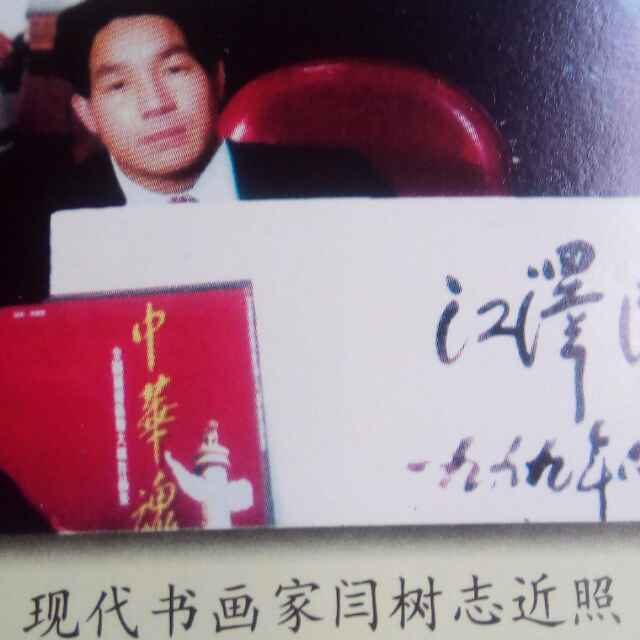 中華魂
江澤
一九八九年
现代书画家闫树志近照